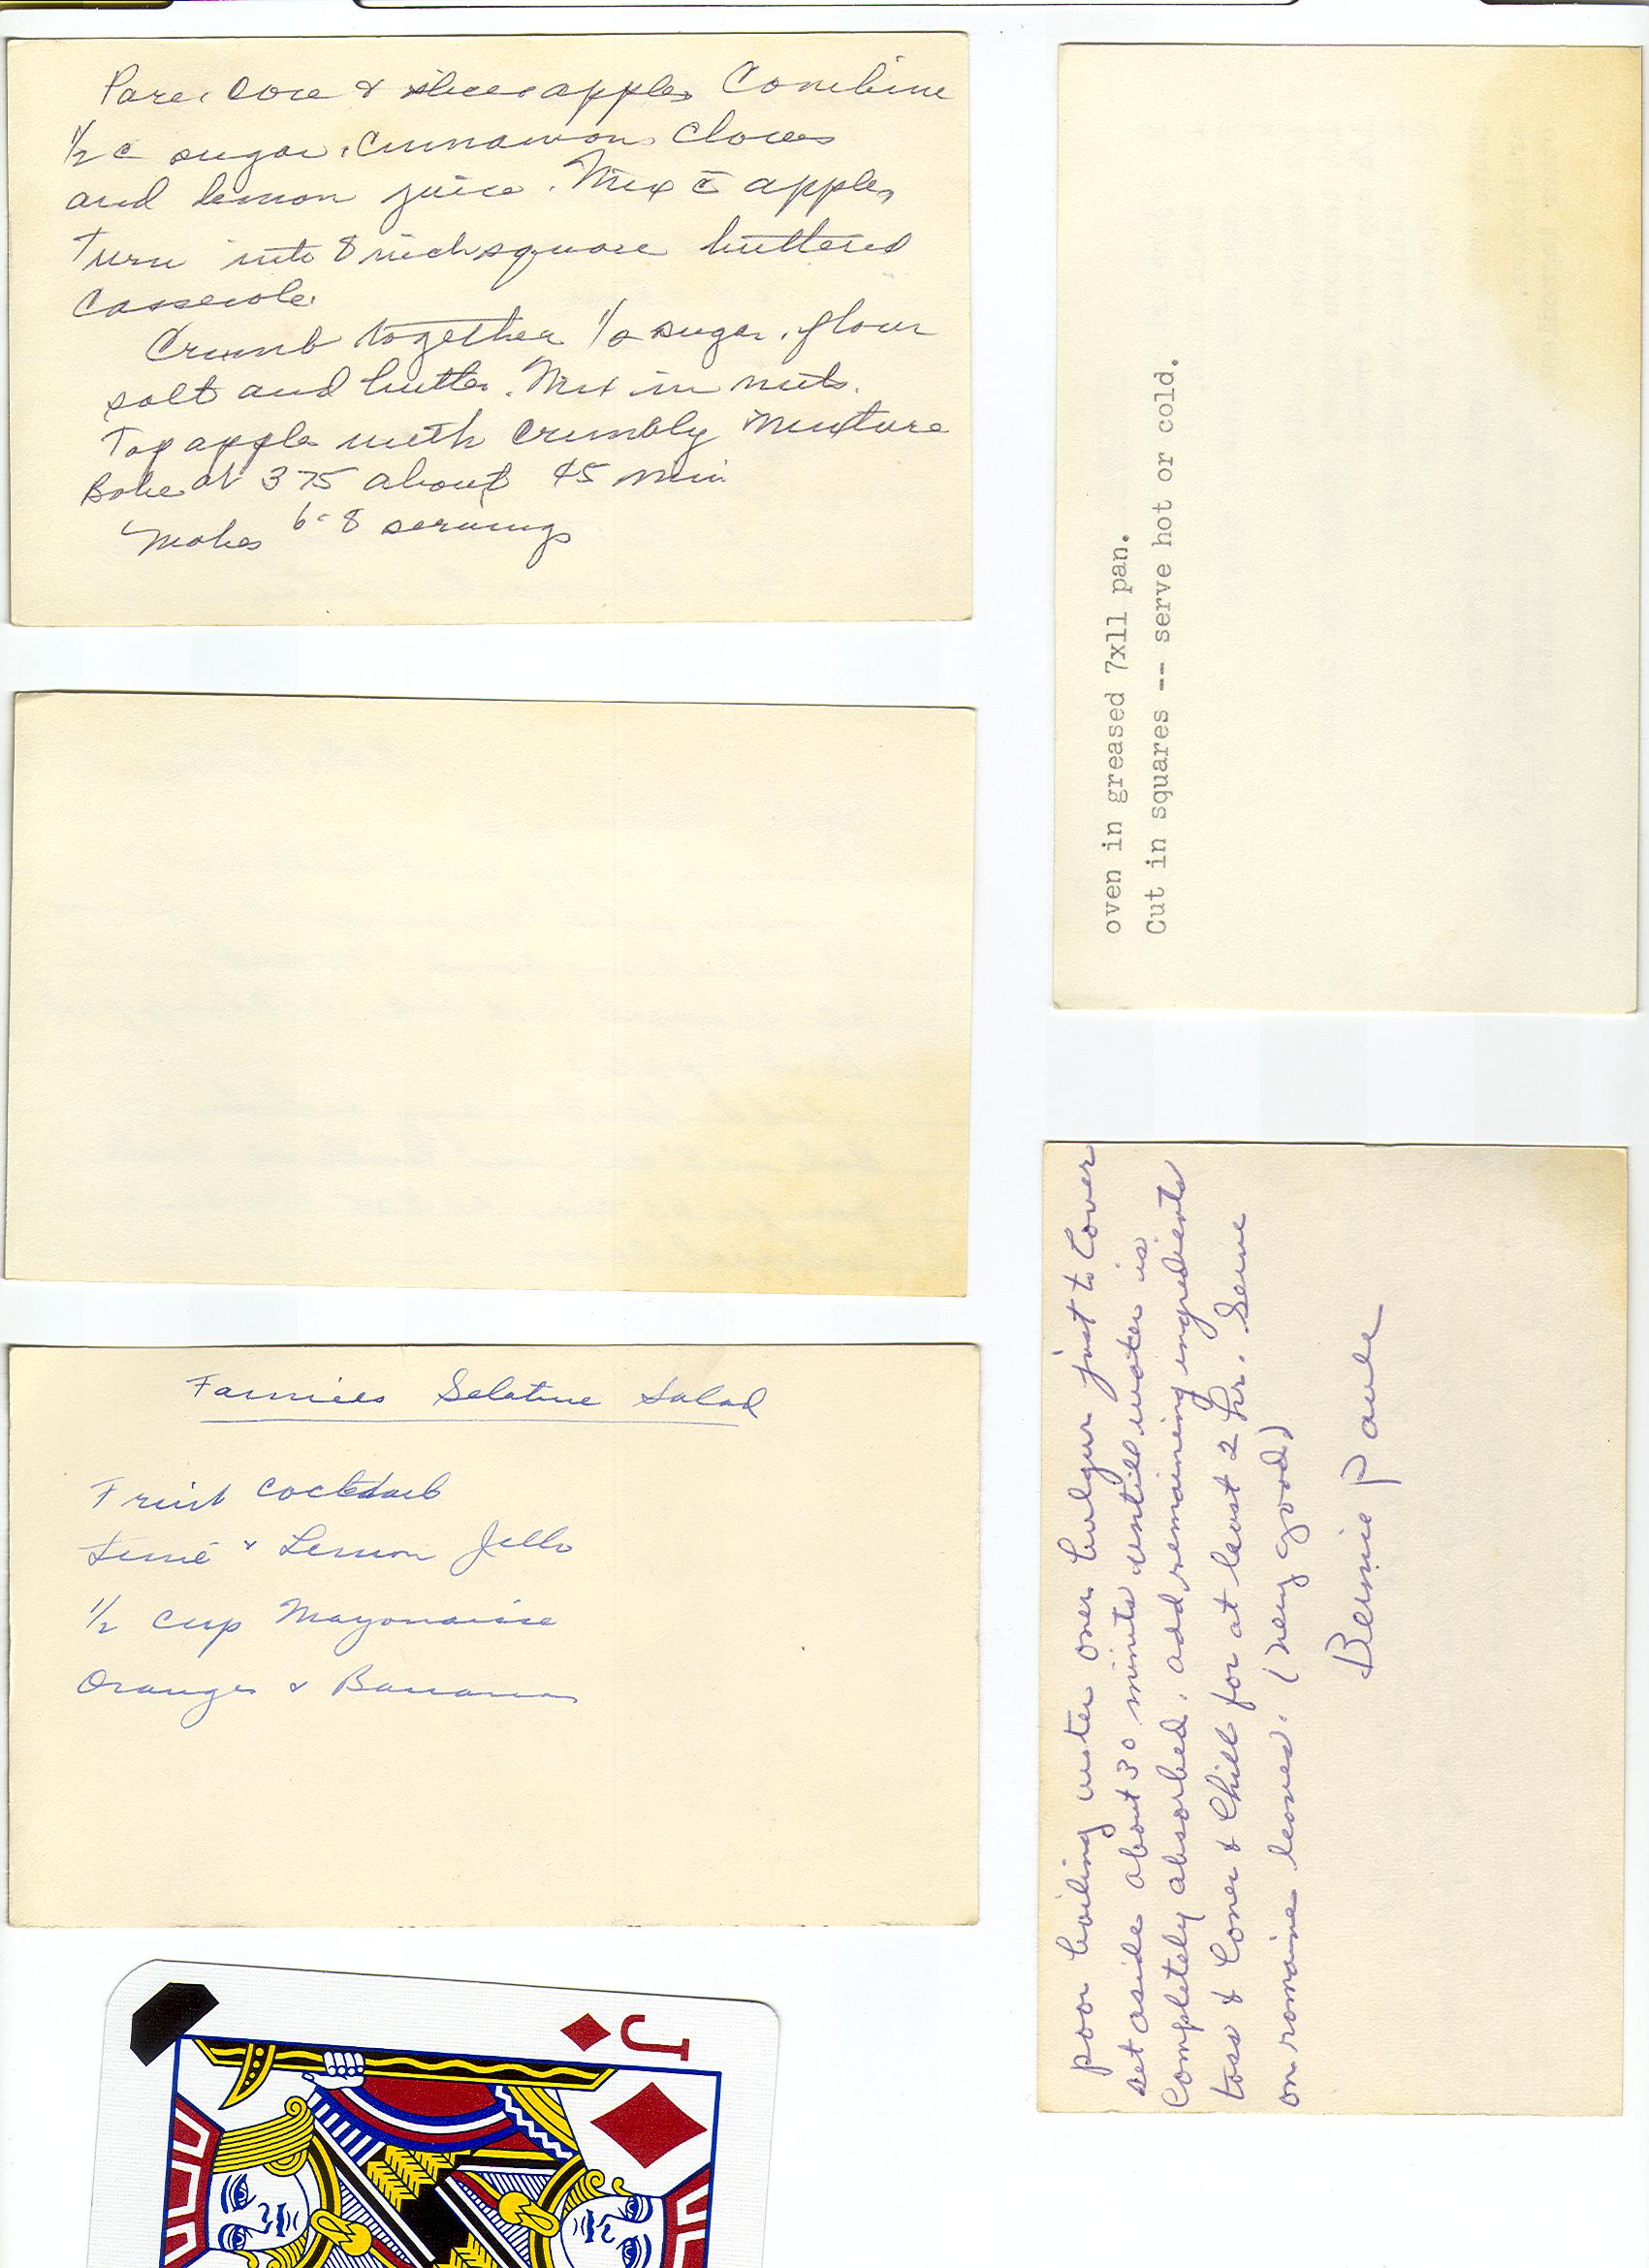 Pare, core & slice apples Combine
1/2 c sugar, cinnamon, cloves
and lemon juice. Mix c̄ apples
Turn into 8 inch square buttered
casserole.
Crumb together 1/2 sugar, flour
salt and butter. Mix in nuts.
Top apples with crumbly mixture
Bake at 375 about 45 min
Makes 6-8 servings
Fannies Gelatine Salad
Fruit Cocktail
Lime & Lemon Jello
1/2 cup Mayonaise
Oranges & Bananas
J
oven in greased 7x11 pan.
Cut in squares -- serve hot or cold.
poor boiling water over bulgur just to cover
set aside about 30 minute until water is
completely absorbed. add remaining ingredients
toss & cover & chill for at least 2 hr. Serve
on romaine leaves. (very good)
Bernie Paule